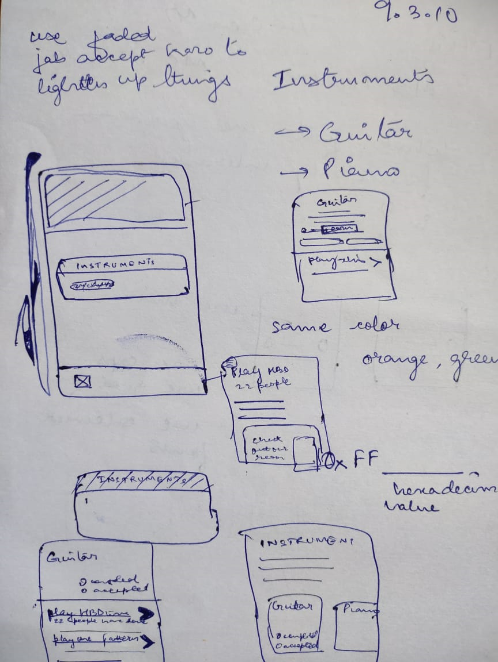 9.3.10
use faded
job accept hero to
lighten up things
Instruments
→ Guitar
→ Piano
Guitar
INSTRUMENTS
same color
orange, green
Play HBD
22 people
check
0x FF
hexadecim
value
INSTRUMENTS
Guitar
0 accepted
play HBD
22 people have done
play one pattern
INSTRUMENT
Guitar
0 accepted
Piano